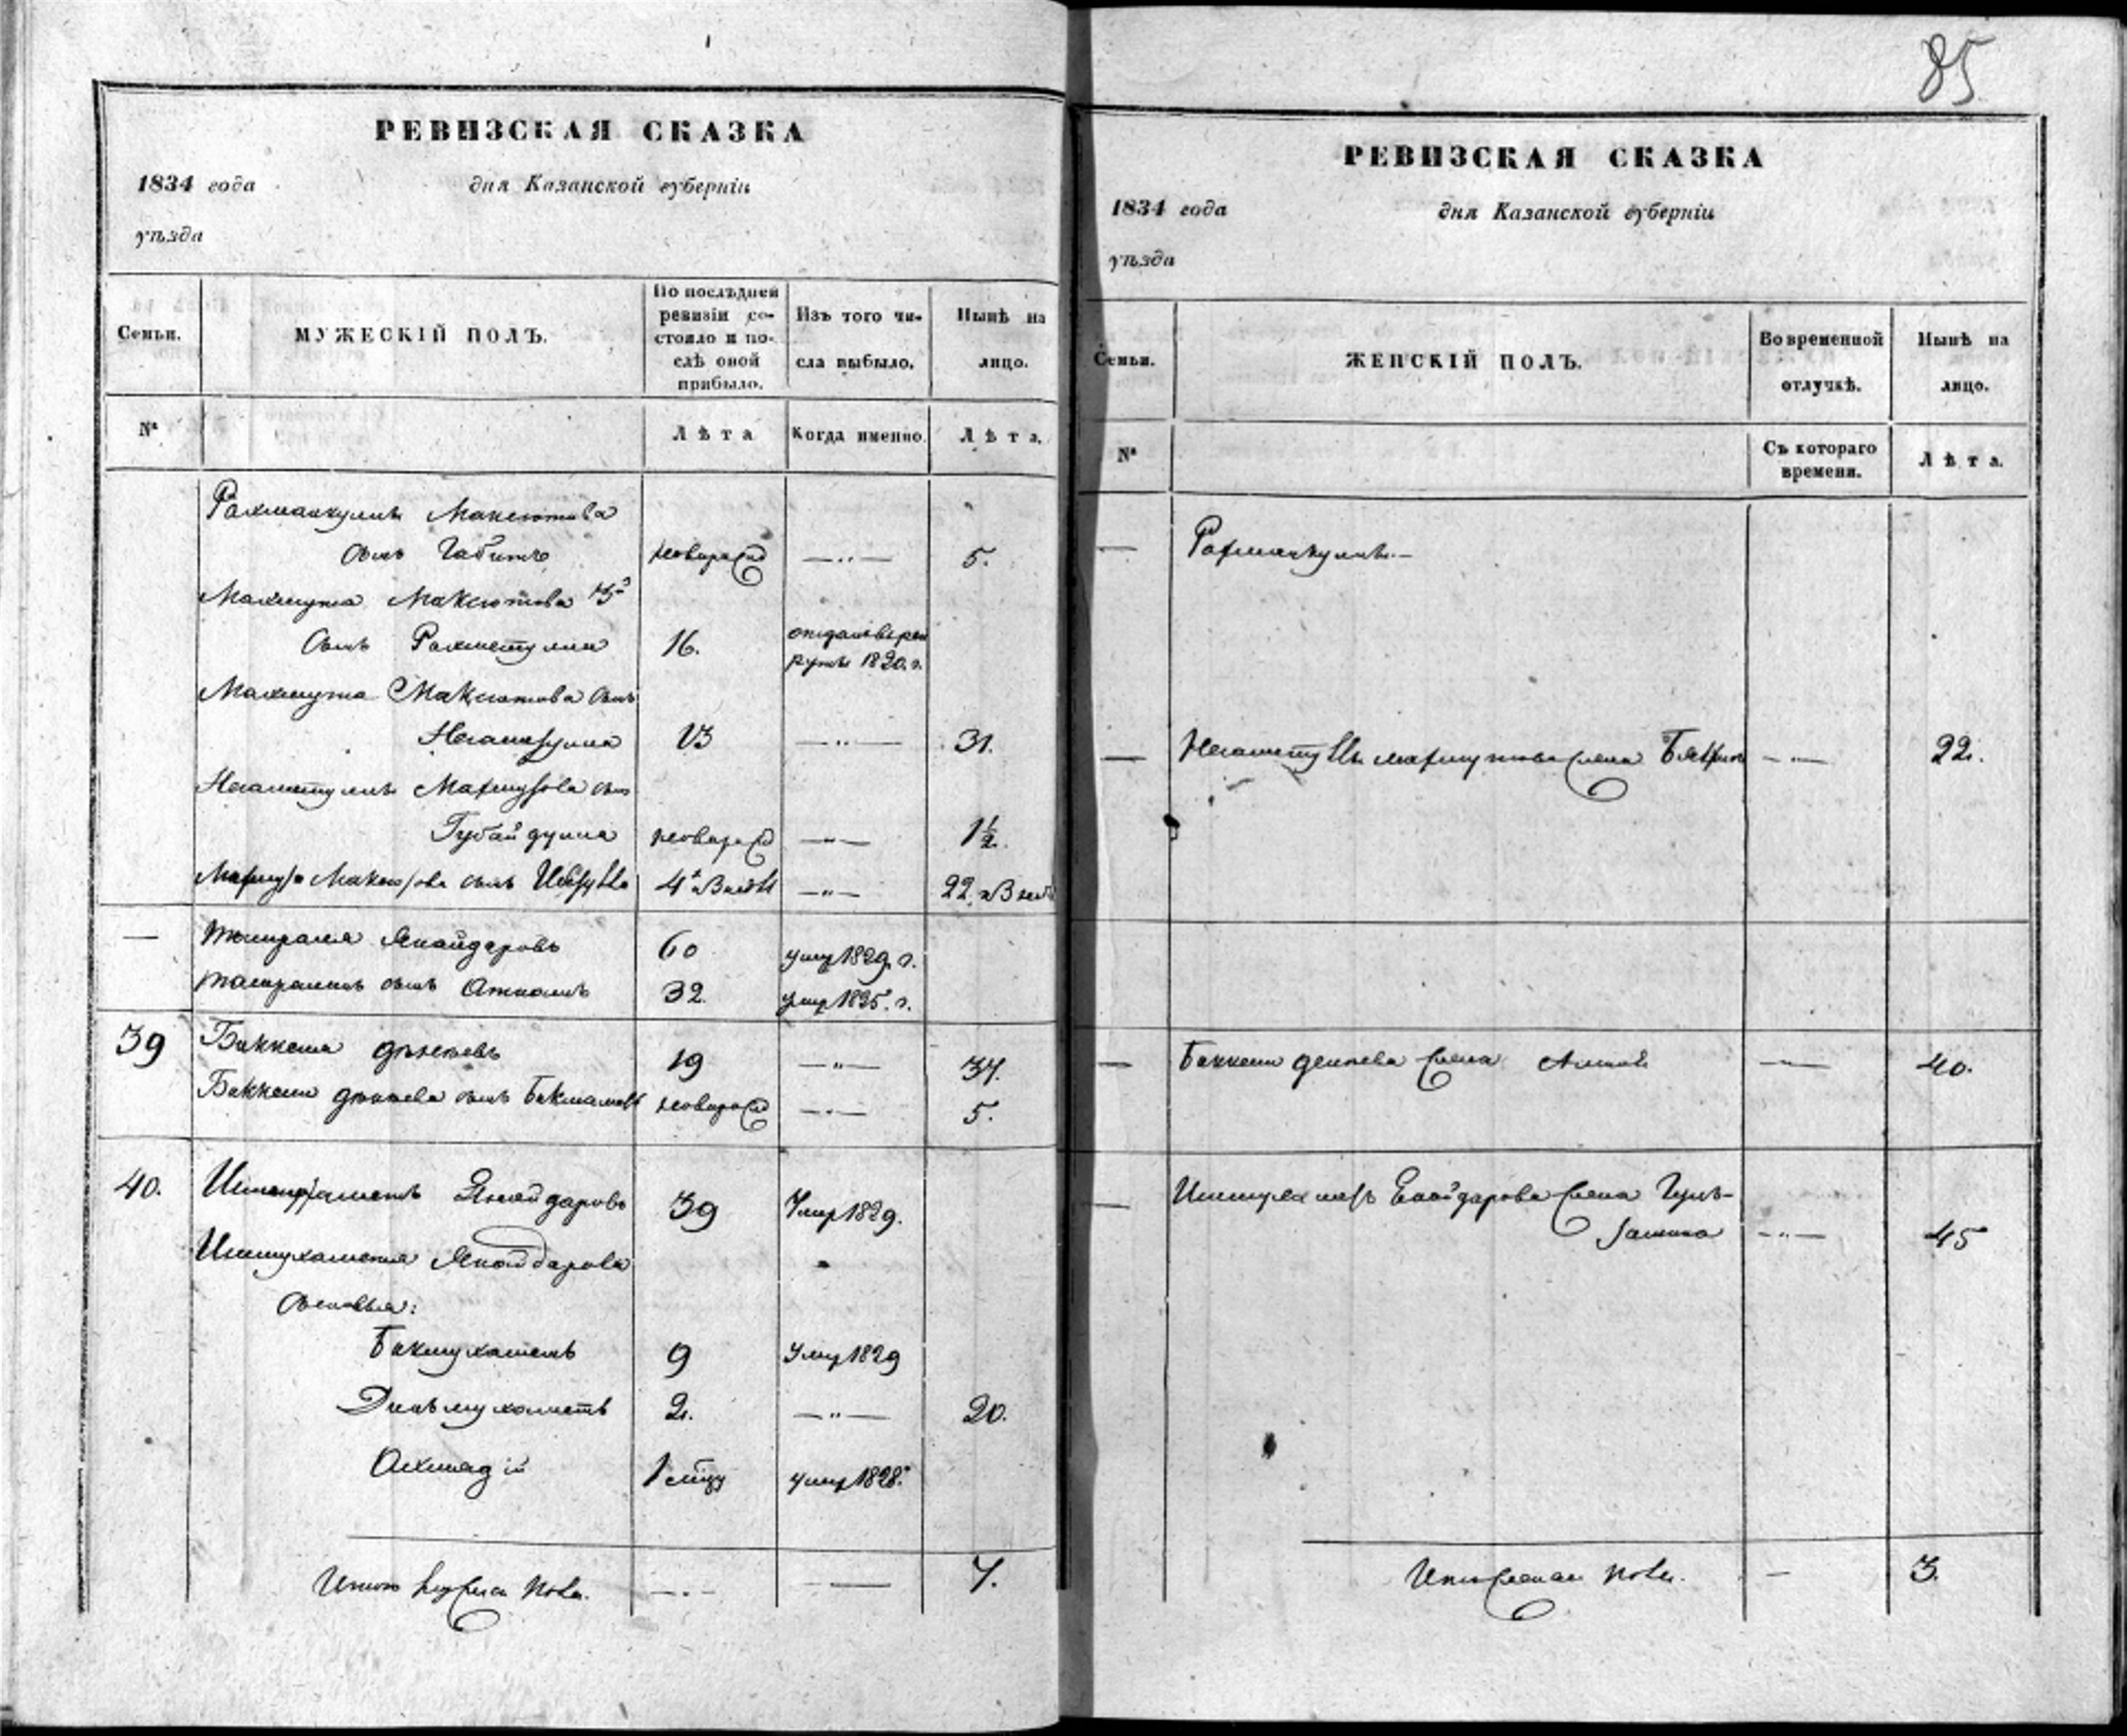 85
РЕВИЗСКАЯ СКАЗКА
1834 года дня Казанской губерніи
уѣзда
Семьи.
МУЖЕСКІЙ ПОЛЪ.
По послѣдней ревизіи со-
стояло и по-
слѣ оной
прибыло.
Изъ того чи-
сла выбыло.
Нынѣ на
лицо.
№
Лѣта
Когда именно.
Лѣта.
Рахманкулъ Максютова
сынъ Габитъ новорожд —"— 5.
Махмута Максютова
сынъ Рахметулла 16. отданъ в рек
руты 1820. г.
Махмута Максютова сынъ
Негаметулла 13 —"— 31.
Негаметуллы Махмутова сынъ
Губайдулла новорожд —"— 1½.
Махмута Максютова сынъ 4 —"— 22.
— Янайдаровъ 60 умер 1829. г.
сынъ 32. умер 1825. г.
39 Биккеня 19 —"— 34.
Биккени сынъ новорожд —"— 5.
40. Ишмухаметъ Янайдаровъ 39 Умер 1829.
Ишмухаметя Янайдарова
сыновья:
Бикмухаметь 9 Умер 1829
Динъмухаметъ 2. —"— 20.
Ахмадій 1 мсцу умер 1828.
Итого мужеска пола. —"— — 7.
РЕВИЗСКАЯ СКАЗКА
1834 года дня Казанской губерніи
уѣзда
Семьи.
ЖЕНСКІЙ ПОЛЪ.
Во временной
отлучкѣ.
Нынѣ на
лицо.
№
Съ котораго
времени.
Лѣта.
— Рахманкулъ.—
— Негаметуллы Махмутова жена —"— 22.
— Биккени жена —"— 40.
— Ишмухаметъ Енайдарова жена Гуль-
—"— 45
Итого женска пола. — 3.